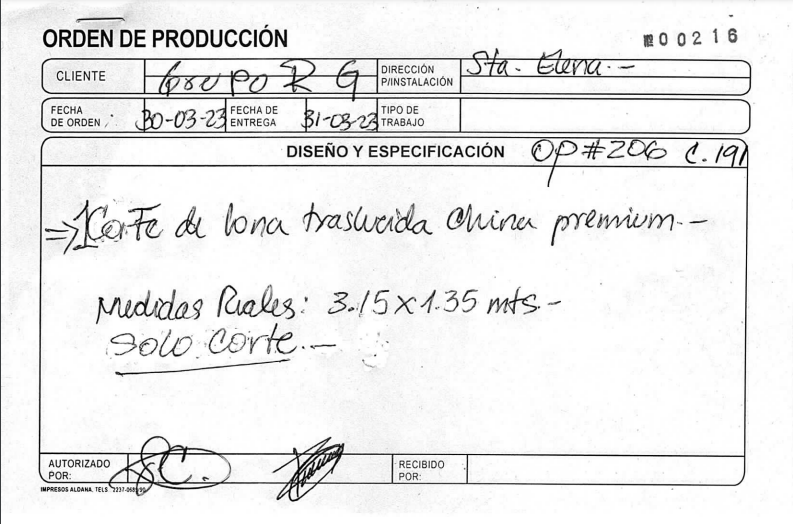 ORDEN DE PRODUCCIÓN
№ 00216
CLIENTE Grupo R G DIRECCIÓN P/INSTALACIÓN Sta. Elena.-
FECHA DE ORDEN 30-03-23 FECHA DE ENTREGA 31-03-23 TIPO DE TRABAJO
DISEÑO Y ESPECIFICACIÓN OP#206 C.191
⇒1 Corte de lona traslucida China premium.-
Medidas Reales: 3.15 x 1.35 mts.-
SOLO Corte.-
AUTORIZADO POR: RECIBIDO POR:
IMPRESOS ALDANA. TELS.